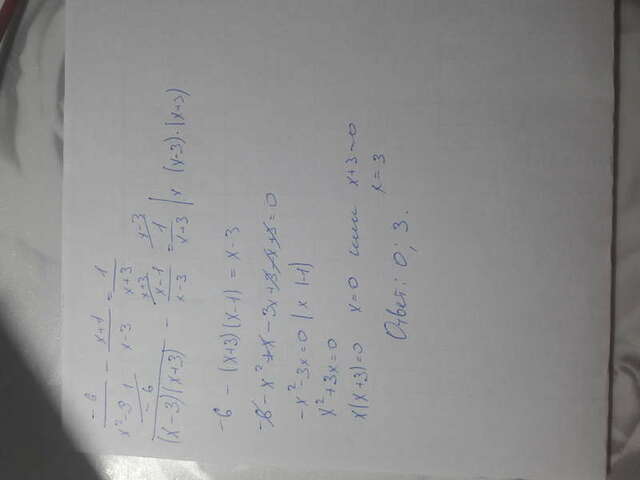 -6/(x²-9) - (x+1)/(x-3) = 1/(x+3)
-6/((x-3)(x+3)) - (x-1)/(x-3) = 1/(x+3) | x (x-3)·(x+3)
-6 - (x+3)(x-1) = x-3
-6 - x² + x - 3x + 3 - x + 3 = 0
-x² - 3x = 0 | x (-1)
x² + 3x = 0
x(x+3)=0 x=0 или x+3=0
x = 3
Ответ: 0; 3.